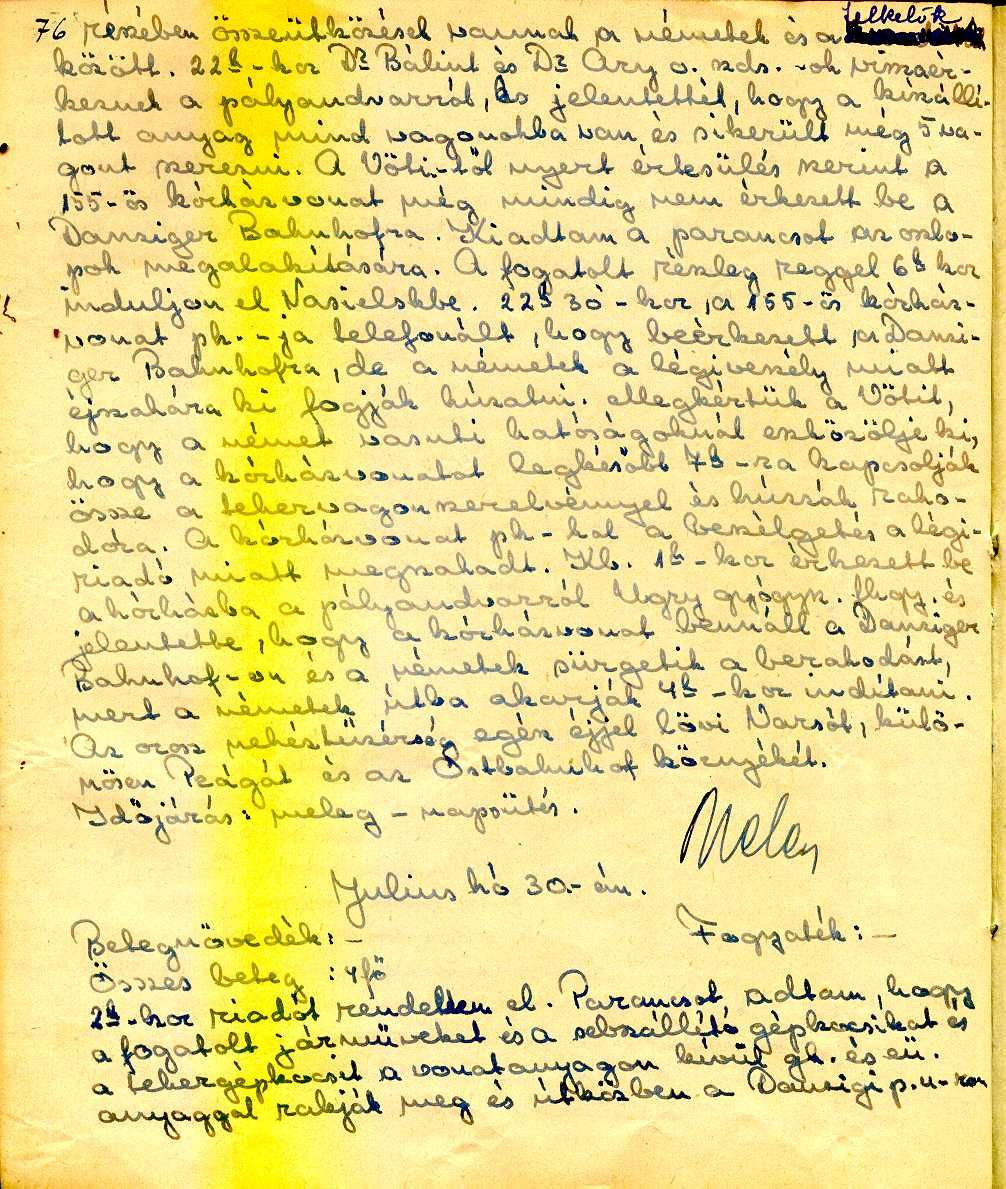 felkelők
76 részében összeütközések vannak a németek és a
között. 22h-kor Dr Bálint és Dr Ary o. zds.-ok visszaér-
keznek a pályaudvarról, és jelentették, hogy a kiszállí-
tott anyag mind vagonokba van és sikerült még 5 va-
gont szerezni. A Vöti.-től nyert értesülés szerint a
155-ös kórházvonat még mindig nem érkezett be a
Danziger Bahnhofra. Kiadtam a parancsot az oszlo-
pok megalakítására. A fogatolt részleg reggel 6h kor
induljon el Nasielskbe. 22h 30-kor, a 155-ös kórház-
vonat pk.-ja telefonált, hogy beérkezett a Danzi-
ger Bahnhofra, de a németek a légiveszély miatt
éjszakára ki fogják húzatni. Megkértük a Vötit,
hogy a német vasuti hatóságoknál eszközölje ki,
hogy a kórházvonatot legkésőbb 7h-ra kapcsolják
össze a tehervagonszerelvénnyel és húzzák rako-
dóra. A kórházvonat pk-kal a beszélgetés a légi-
riadó miatt megszakadt. Kb. 1h-kor érkezett be
a kórházba a pályaudvarról Ugry gyógysz. fhgy. és
jelentette, hogy a kórházvonat bennáll a Danziger
Bahnhof-on és a németek sürgetik a berakodást,
mert a németek útba akarják 4h-kor indítani.
Az orosz nehéztüzérség egész éjjel lövi Varsót, külö-
nösen Prágát és az Ostbahnhof környékét.
Időjárás: meleg – napsütés.
Julius hó 30.-án.
Betegnövedék: – Fogyaték: –
Összes beteg : 4 fő
2h-kor riadót rendeltem el. Parancsot adtam, hogy
a fogatolt járműveket és a sebszállító gépkocsikat és
a tehergépkocsit a vonatanyagon kívül gh. és eü.
anyaggal rakják meg és útközben a Danzigi p.u-ron